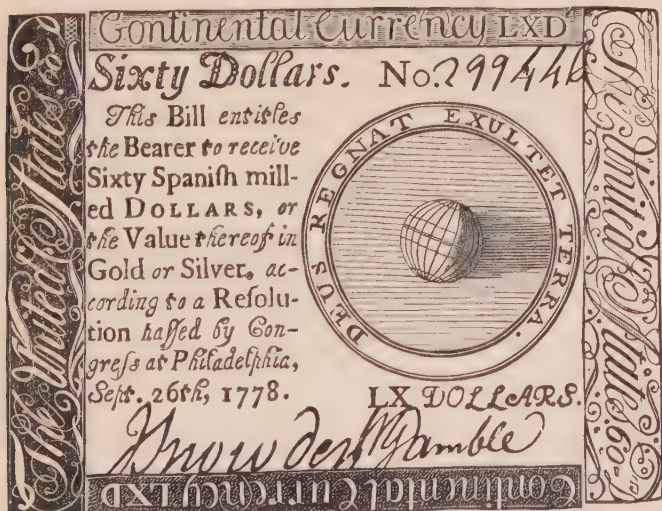 Continental Currency LXD.ˢ
Sixty Dollars. No. 299446
This Bill entitles
the Bearer to receive
Sixty Spaniſh mill-
ed DOLLARS, or
the Value thereof in
Gold or Silver, ac-
cording to a Reſolu-
tion paſſed by Con-
greſs at Philadelphia,
Sept. 26th, 1778.
DEUS REGNAT EXULTET TERRA.
LX DOLLARS.
Snowden Gamble
Continental Currency LXD
The United States.60
The United States.60